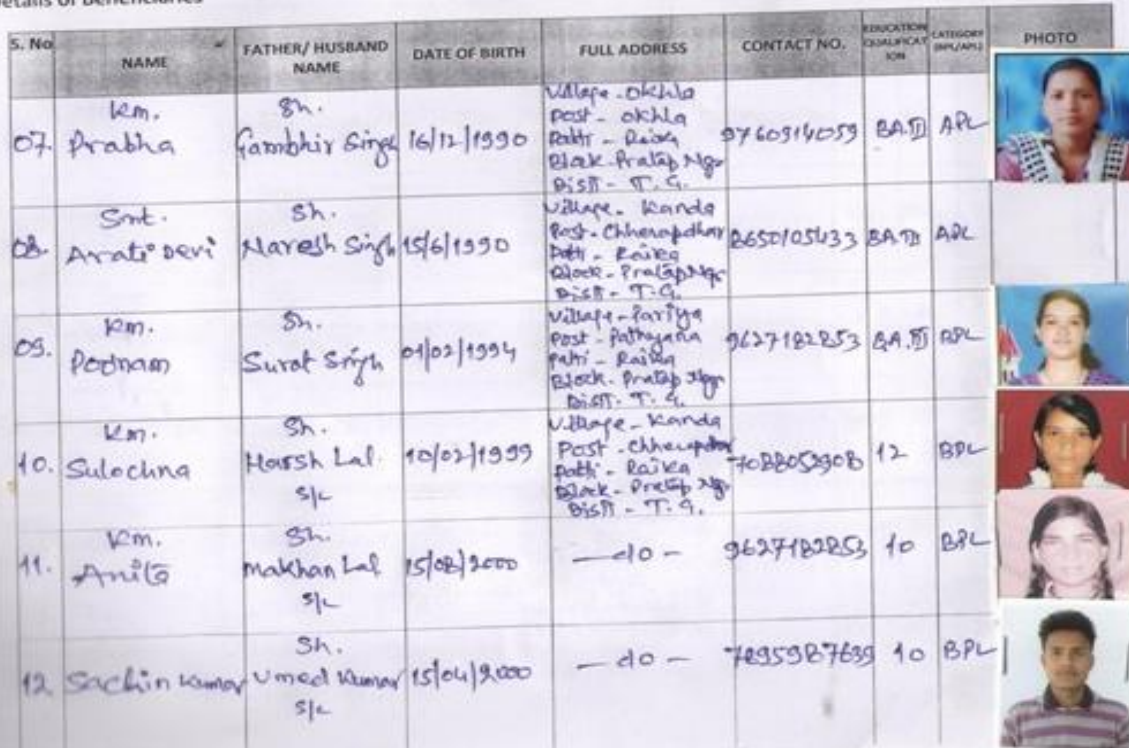 Details of Beneficiaries
S. No
NAME
FATHER/ HUSBAND
NAME
DATE OF BIRTH
FULL ADDRESS
CONTACT NO.
EDUCATION
QUALIFICAT
ION
CATEGORY
(BPL/APL)
PHOTO
07.
Km.
Prabha
Sh.
Gambhir Singh
16/12/1990
Village - Okhla
Post - Okhla
Patti - Raika
Block - Pratap Ngr
Distt - T. G.
9760914059
BA.III
APL
08.
Smt.
Arati Devi
Sh.
Naresh Singh
15/6/1990
Village - Kanda
Post - Chherapdhar
Patti - Raika
Block - Pratap Ngr
Distt - T.G.
8650105433
BA.III
APL
09.
Km.
Poonam
Sh.
Surat Singh
01/02/1994
Village - Pariya
Post - Pathyana
Patti - Raika
Block - Pratap Ngr
Distt - T. G.
9627182853
BA.III
BPL
10.
Km.
Sulochna
Sh.
Harsh Lal
S/c
10/02/1999
Village - Kanda
Post - Chherapdhar
Patti - Raika
Block - Pratap Ngr
Distt - T. G.
7088052908
12
BPL
11.
Km.
Anita
Sh.
Makhan Lal
S/c
15/08/2000
- do -
9627182853
10
BPL
12
Sachin Kumar
Sh.
Umed Kumar
S/c
15/04/2000
- do -
7895987639
10
BPL